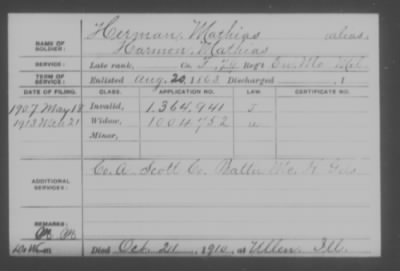 Herman, Mathias alias,
NAME OF SOLDIER: Harmon, Mathias
SERVICE: Late rank, Co. F, 74 Reg't En. Mo. Mil.
TERM OF SERVICE: Enlisted Aug. 20, 1863 Discharged , 1
DATE OF FILING. CLASS. APPLICATION NO. LAW. CERTIFICATE NO.
1907 May 18 Invalid, 1.364.941 J
1913 Mch 21 Widow, 1004752 u
Minor,
ADDITIONAL SERVICES: Co. A. Scott Co. Battn Mo. H. Gds
REMARKS:
Died Oct. 24, 1910, at Ullin, Ill.